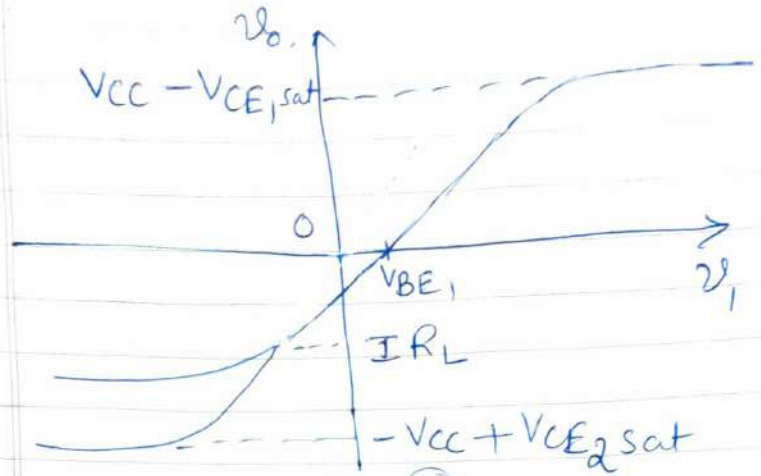 v₀
VCC - VCE₁,sat
0
VBE₁
v₁
IRL
-VCC + VCE₂ sat